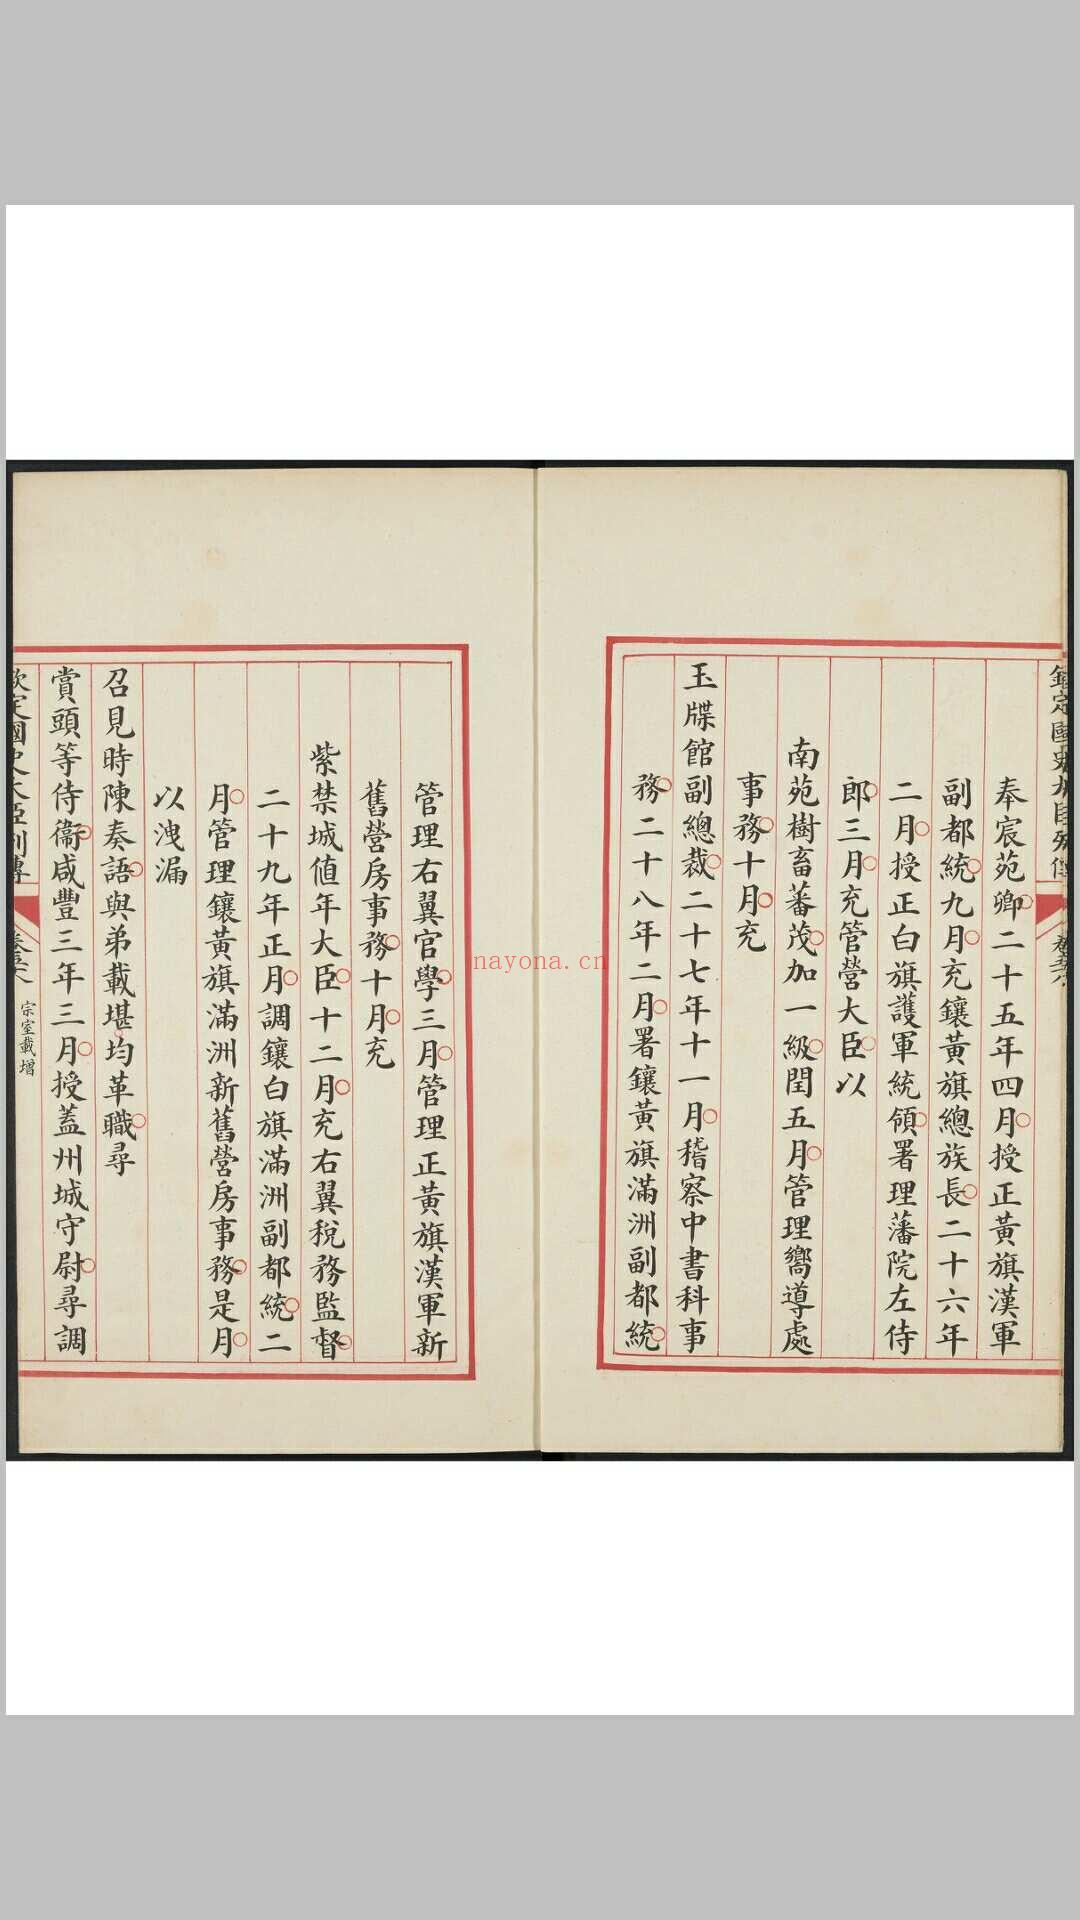 奉宸苑卿二十五年四月授正黃旗漢軍
副都統九月充鑲黃旗總族長二十六年
二月授正白旗護軍統領署理藩院左侍
郎三月充管營大臣以
南苑樹畜蕃茂加一級閏五月管理嚮導處
事務十月充
玉牒館副總裁二十七年十一月稽察中書科事
務二十八年二月署鑲黃旗滿洲副都統
管理右翼官學三月管理正黃旗漢軍新
舊營房事務十月充
紫禁城值年大臣十二月充右翼稅務監督
二十九年正月調鑲白旗滿洲副都統二
月管理鑲黃旗滿洲新舊營房事務是月
以洩漏
召見時陳奏語與弟載堪均革職尋
賞頭等侍衞咸豐三年三月授蓋州城守尉尋調
欽定國史大臣列傳
宗室載增
nayona.cn